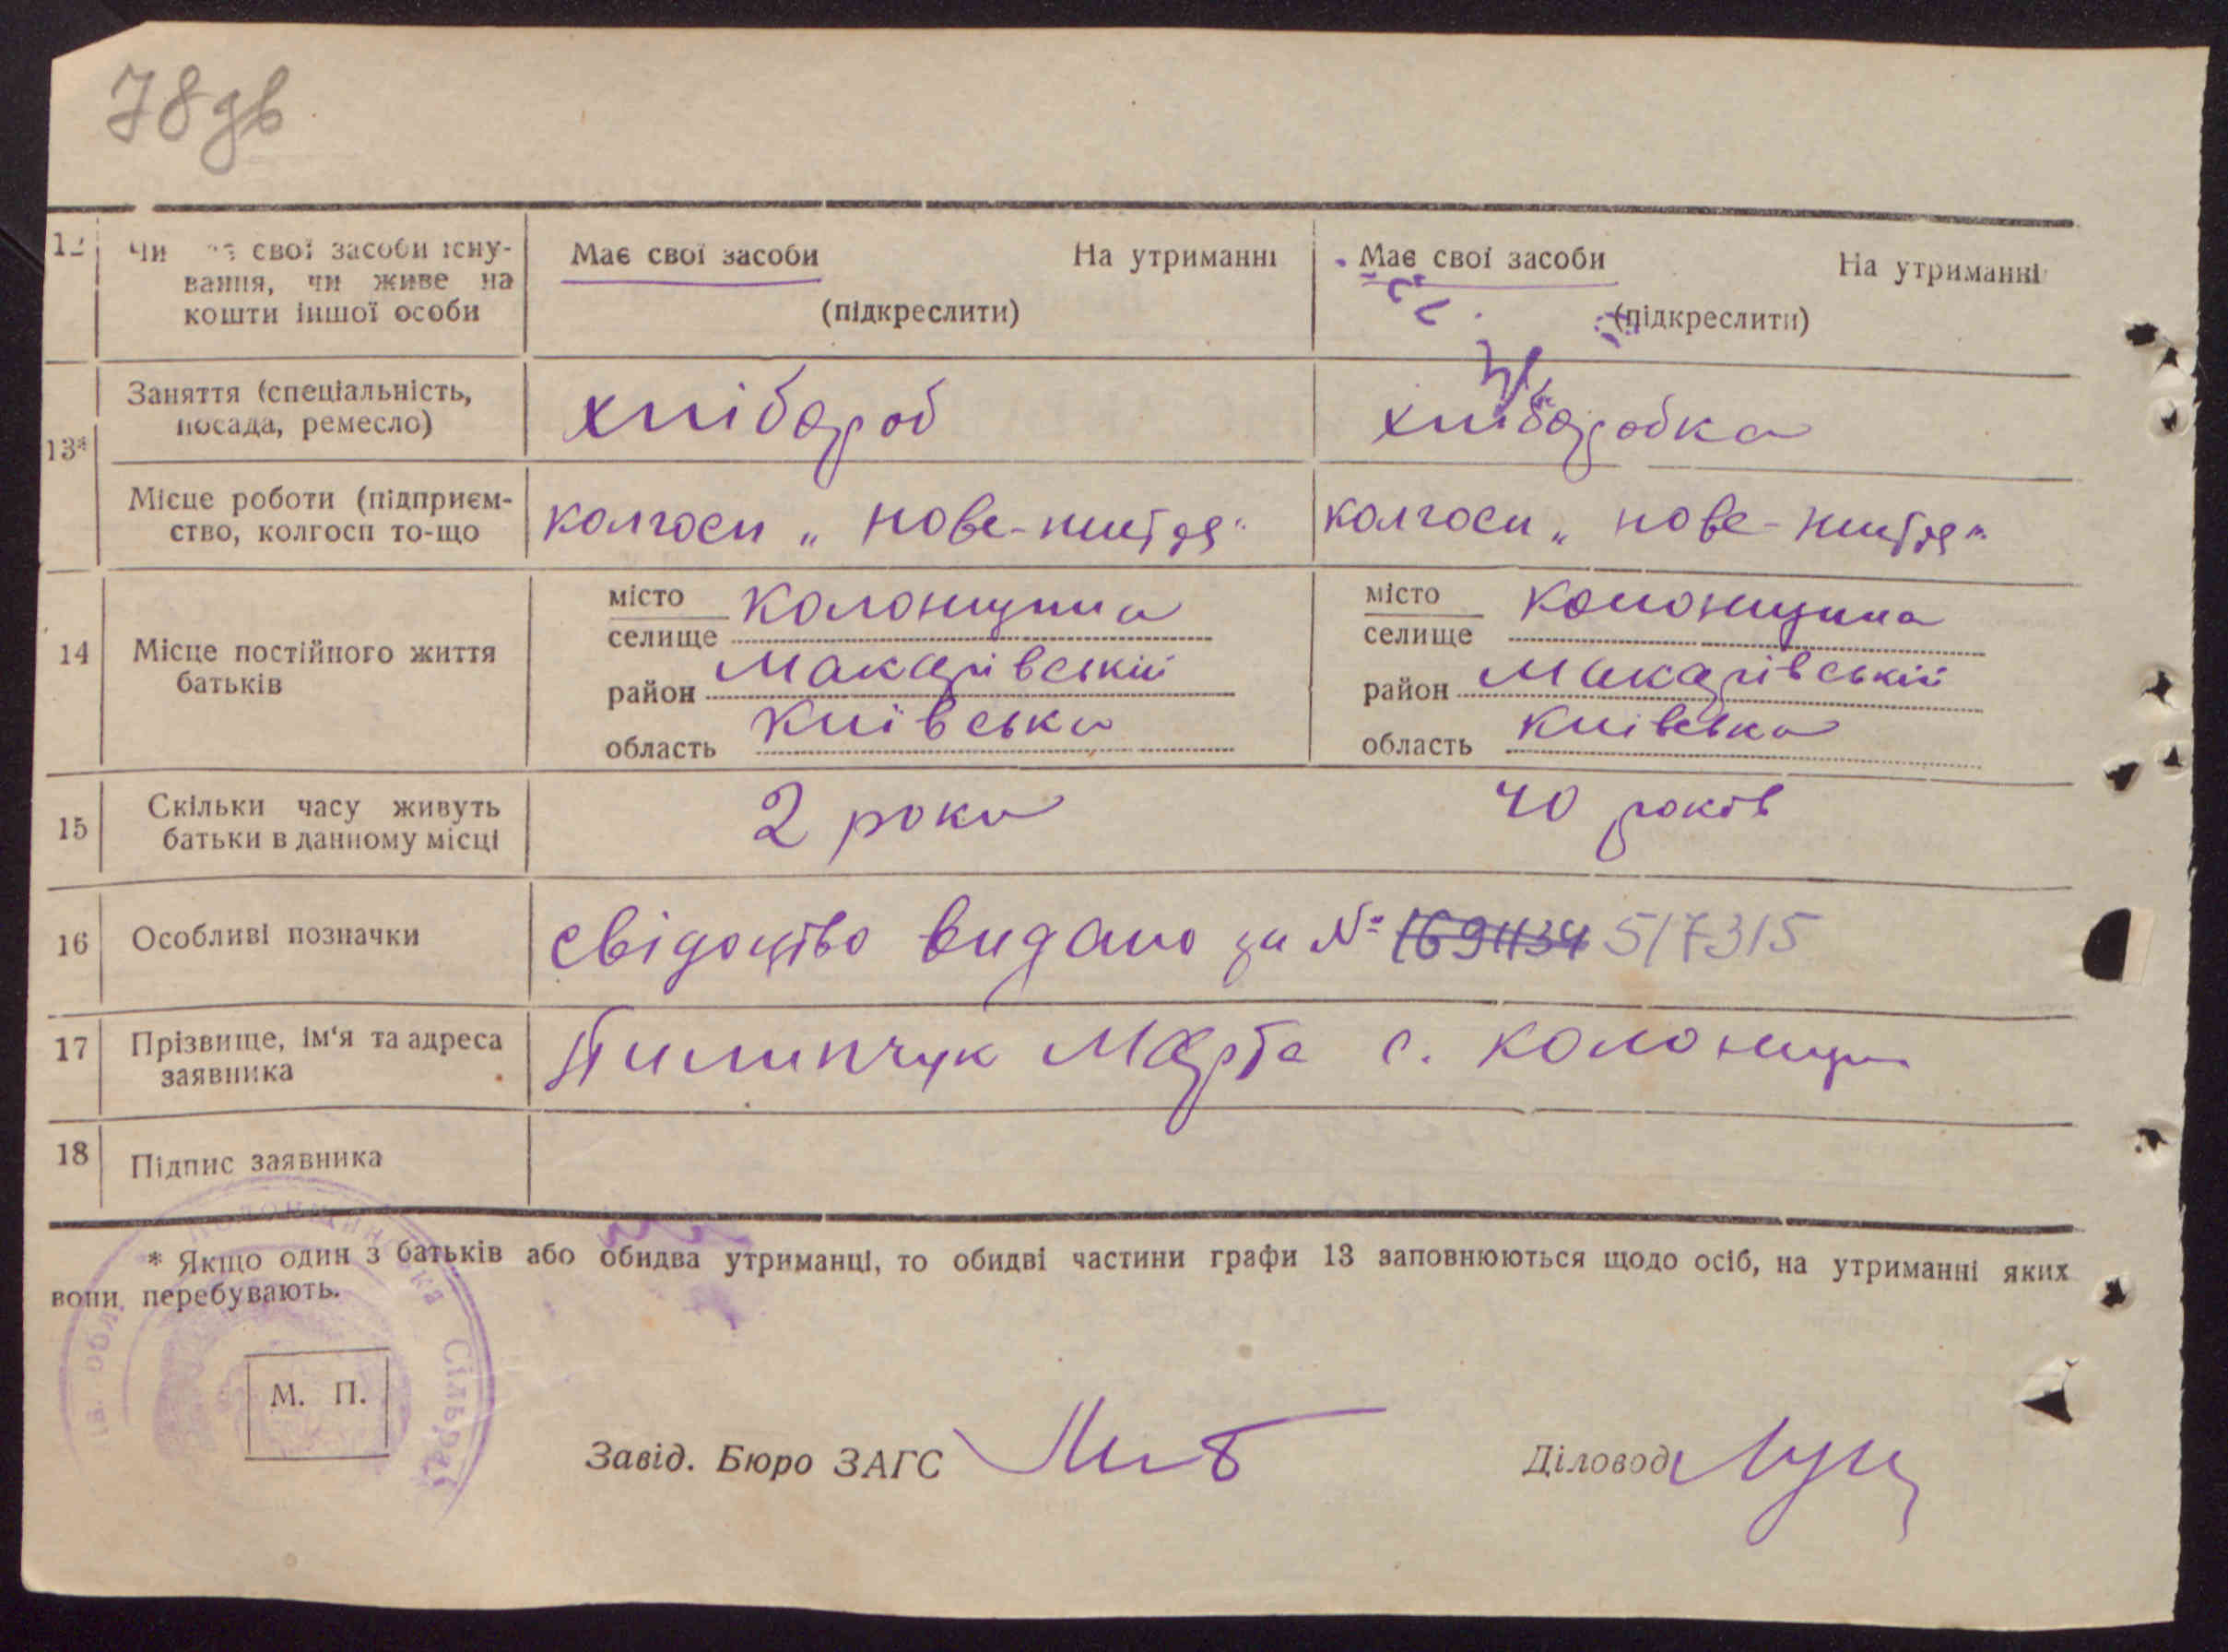 78дв
12 Чи має свої засоби існу- Має свої засоби На утриманні Має свої засоби На утриманні
вання, чи живе на
кошти іншої особи (підкреслити) (підкреслити)
Заняття (спеціальність, хлібороб хліборобка
посада, ремесло)
13*
Місце роботи (підприєм- колгосп „ нове-життя" колгосп „ нове-життя"
ство, колгосп то-що
місто Колонщина місто Колонщина
селище селище
14 Місце постійного життя район Макарівський район Макарівський
батьків
область Київська область Київська
15 Скільки часу живуть 2 роки 40 років
батьки в данному місці
16 Особливі позначки свідоцтво видано за № 517315
17 Прізвище, ім'я та адреса Пилипчук Марта с. Колонщи
заявника
18 Підпис заявника
* Якщо один з батьків або обидва утриманці, то обидві частини графи 13 заповнюються щодо осіб, на утриманні яких
вони перебувають.
Колонщинська Сільрада
обл.
М. П.
Завід. Бюро ЗАГС Діловод